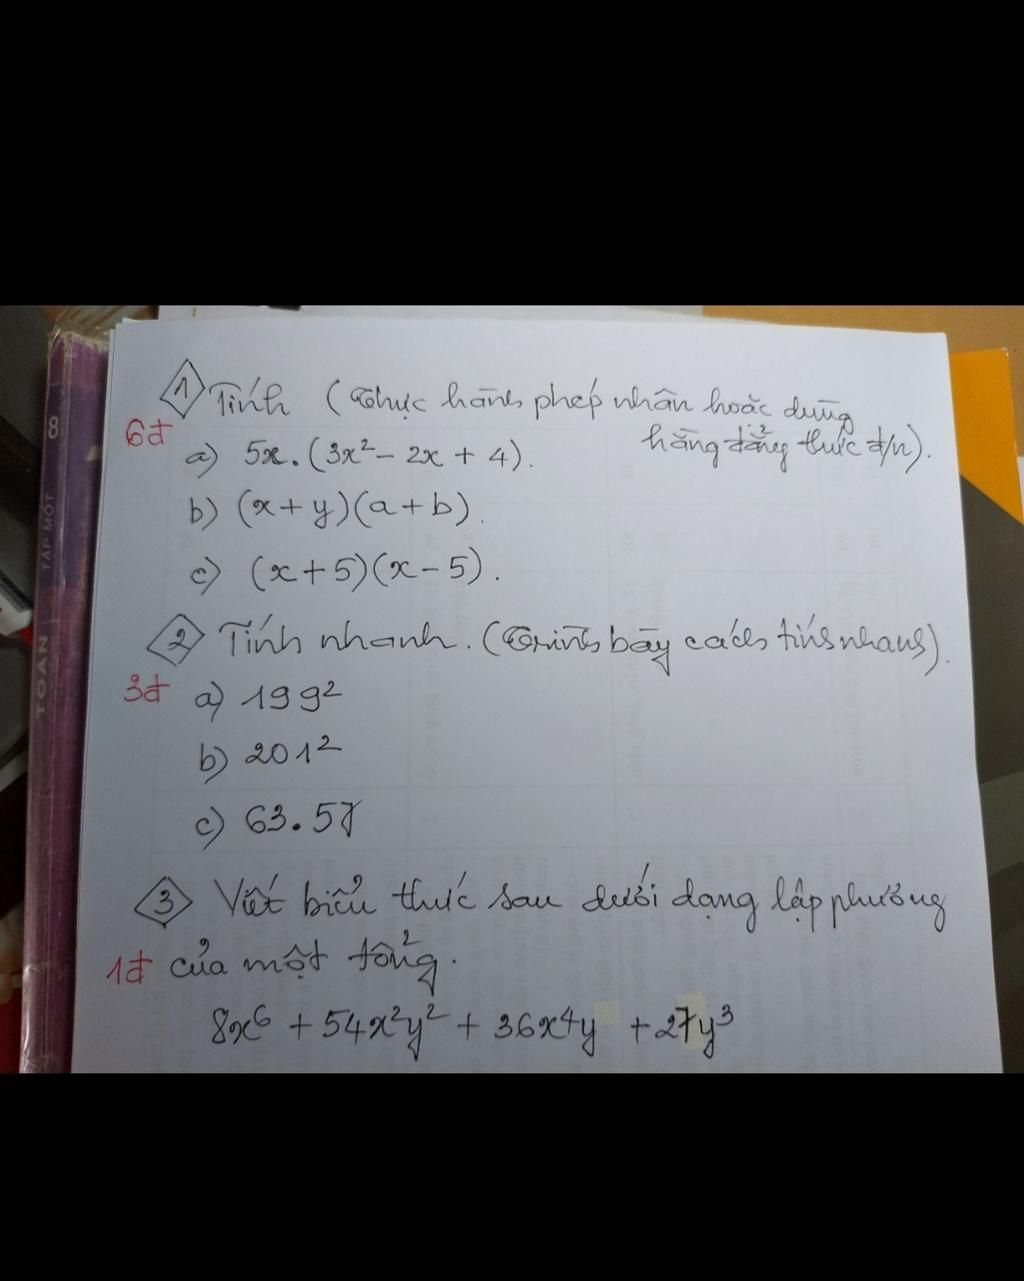 1 Tính (Thực hành phép nhân hoặc dùng
hằng đẳng thức đ/n).
6đ
a) 5x.(3x² - 2x + 4).
b) (x + y)(a + b).
c) (x + 5)(x - 5).
2 Tính nhanh. (Trình bày cách tính nhanh).
3đ a) 199²
b) 201²
c) 63.57
3 Viết biểu thức sau dưới dạng lập phương
1đ của một tổng.
8x⁶ + 54x²y² + 36x⁴y + 27y³
8
TẬP MỘT
TOÁN